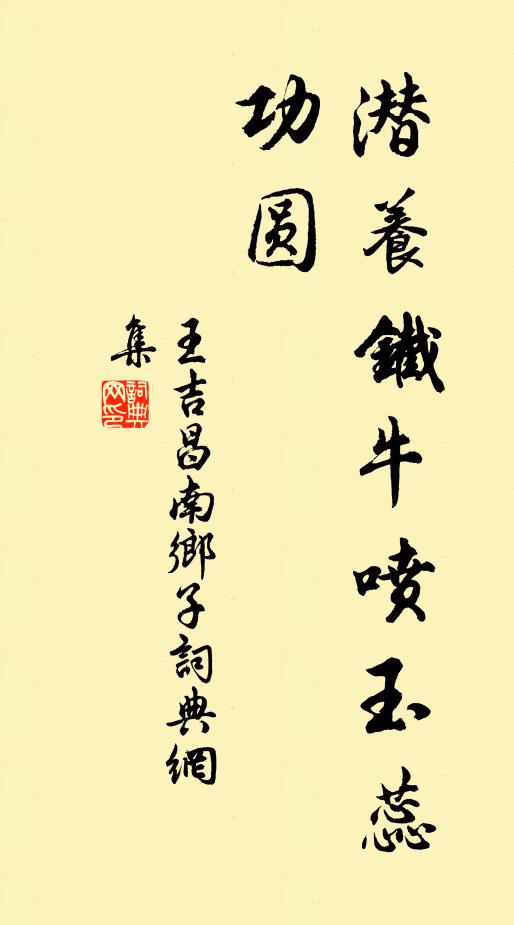 潜養鐵牛噴玉蕊
功圆
王吉昌南鄉子詞典網
集
詞典
网印